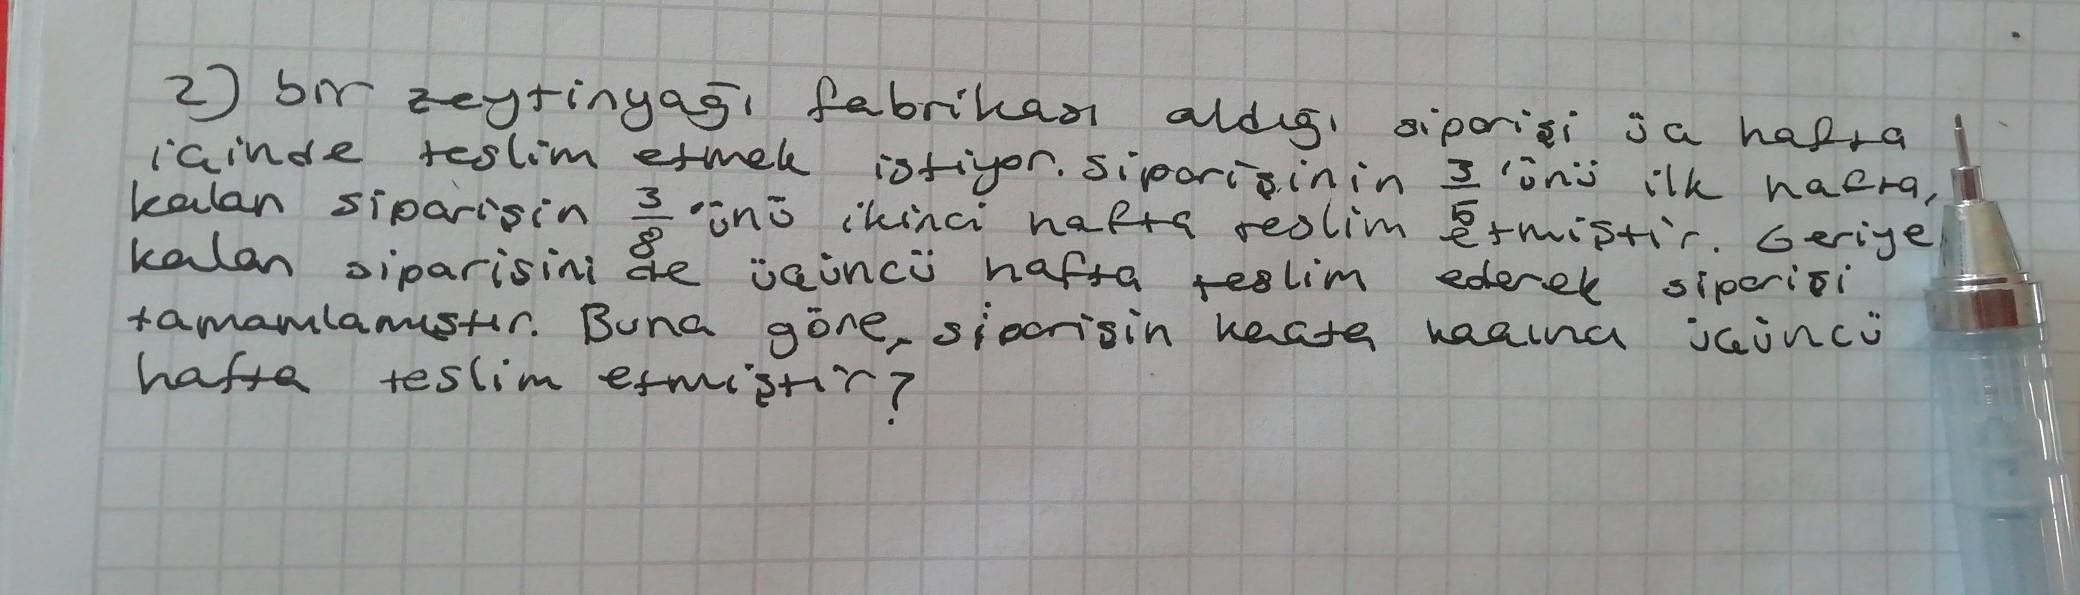 2) bir zeytinyağı fabrikası aldığı siparişi üç hafta
içinde teslim etmek istiyor. Siparişinin 3/5 'ünü ilk hafta,
kalan siparişin 3/8 'ünü ikinci hafta teslim etmiştir. Geriye
kalan siparişini de üçüncü hafta teslim ederek siparişi
tamamlamıştır. Buna göre, siparişin kaçta kaçını üçüncü
hafta teslim etmiştir?